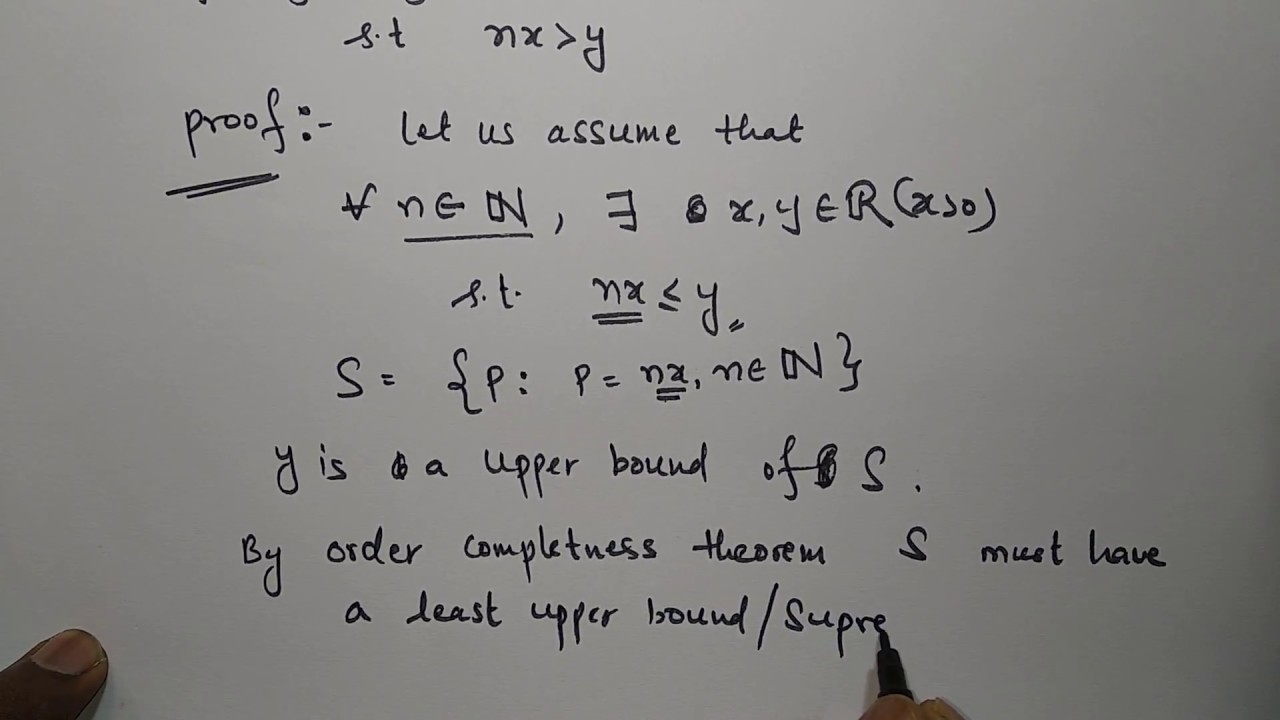 s.t nx>y
proof:- let us assume that
∀ n∈ ℕ, ∃ x, y ∈ ℝ (x>0)
s.t. nx ≤ y
S = {p: p = nx, n∈ ℕ}
y is a upper bound of S.
By order completness theorem S must have
a least upper bound/Supre